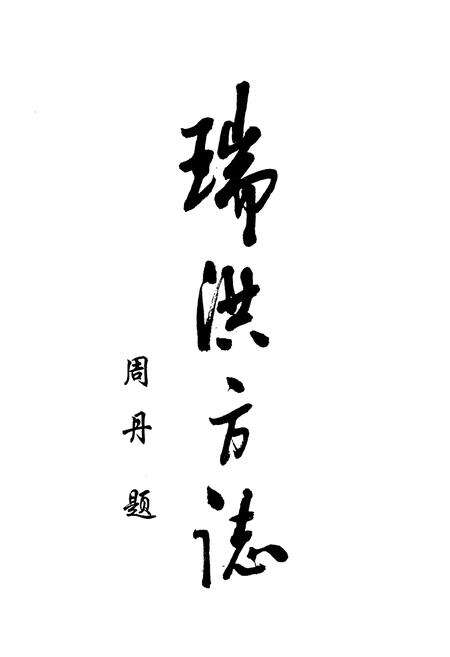 瑞洪方誌
周丹题